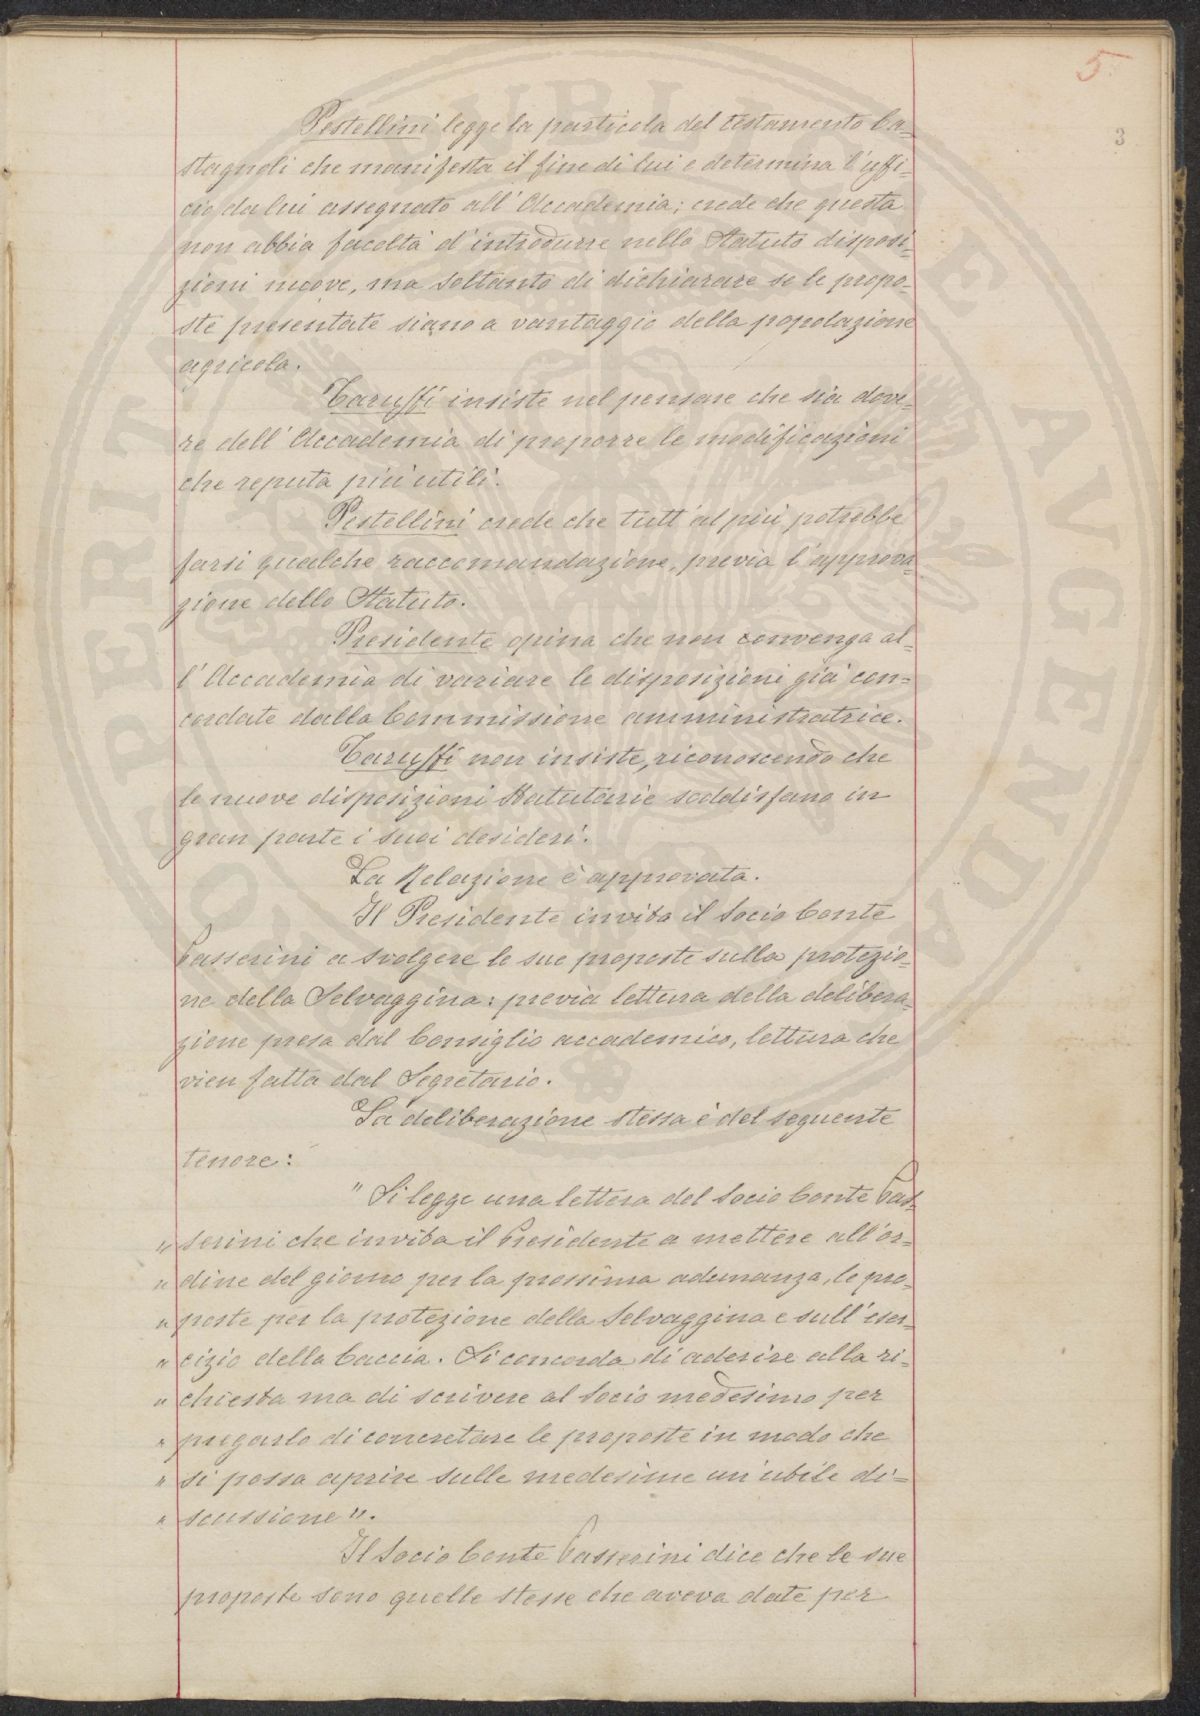 5
3
Pestellini legge la particola del testamento Ca-
stagnoli che manifesta il fine di lui e determina l'uffi-
cio da lui assegnato all'Accademia; crede che questa
non abbia facoltà d'introdurre nello Statuto disposi-
zioni nuove, ma soltanto di dichiarare se le propo-
ste presentate siano a vantaggio della popolazione
agricola.
Taruffi insiste nel pensare che sia dove-
re dell'Accademia di proporre le modificazioni
che reputa più utili.
Pestellini crede che tutt'al più potrebbe
farsi qualche raccomandazione, previa l'approva-
zione dello Statuto.
Presidente opina che non convenga al-
l'Accademia di variare le disposizioni già con=
cordate dalla Commissione amministratrice.
Taruffi non insiste, riconoscendo che
le nuove disposizioni Statutarie soddisfano in
gran parte i suoi desideri.
La Relazione è approvata.
Il Presidente invita il Socio Conte
Passerini a svolgere le sue proposte sulla protezio-
ne della Selvaggina: previa lettura della delibera-
zione presa dal Consiglio accademico, lettura che
vien fatta dal Segretario.
La deliberazione stessa è del seguente
tenore:
" Si legge una lettera del Socio Conte Pas-
" serini che invita il Presidente a mettere all'or-
" dine del giorno per la prossima adunanza, le pro-
" poste per la protezione della Selvaggina e sull'eser-
" cizio della Caccia. Si concorda di aderire alla ri-
" chiesta ma di scrivere al Socio medesimo per
" pregarlo di concretare le proposte in modo che
" si possa aprire sulle medesime un'utile di=
" scussione ".
Il Socio Conte Passerini dice che le sue
proposte sono quelle stesse che aveva date per
PROSPERITATI PUBLICAE AVGENDAE